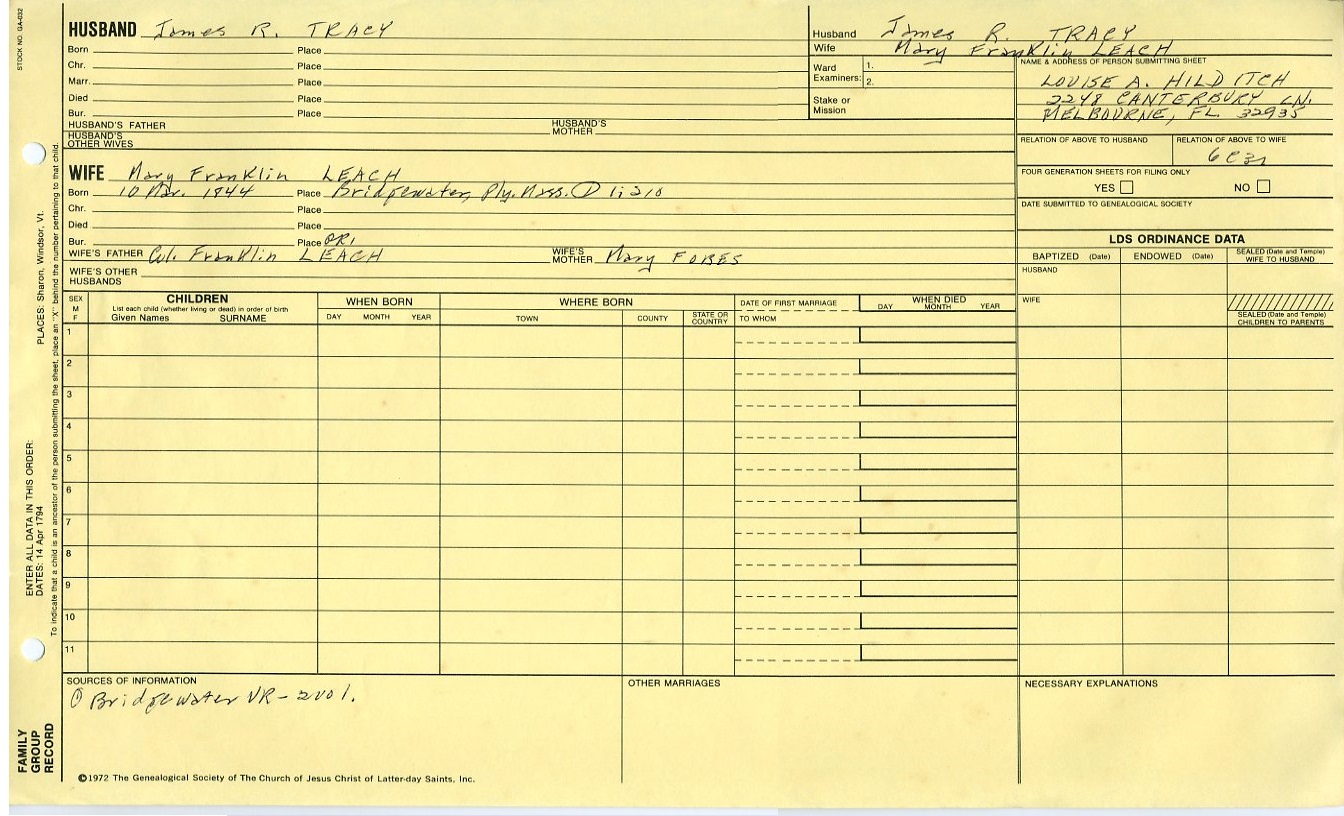 STOCK NO. GA-032
HUSBAND James R. TRACY
Born Place
Chr. Place
Marr. Place
Died Place
Bur. Place
HUSBAND'S FATHER HUSBAND'S MOTHER
HUSBAND'S OTHER WIVES
Husband James R. TRACY
Wife Mary Franklin LEACH
Ward Examiners: 1.
2.
Stake or Mission
NAME & ADDRESS OF PERSON SUBMITTING SHEET
LOUISE A. HILDITCH
2248 CANTERBURY LN.
MELBOURNE, FL 32935
RELATION OF ABOVE TO HUSBAND RELATION OF ABOVE TO WIFE
6C3r
FOUR GENERATION SHEETS FOR FILING ONLY
YES NO
DATE SUBMITTED TO GENEALOGICAL SOCIETY
WIFE Mary Franklin LEACH
Born 10 Mar. 1844 Place Bridgewater, Ply. Mass. ① 1;210
Chr. Place
Died Place
Bur. Place
WIFE'S FATHER Franklin LEACH WIFE'S MOTHER Mary FOBES
WIFE'S OTHER HUSBANDS
LDS ORDINANCE DATA
BAPTIZED (Date) ENDOWED (Date) SEALED (Date and Temple) WIFE TO HUSBAND
HUSBAND
WIFE
SEALED (Date and Temple) CHILDREN TO PARENTS
SEX M F
CHILDREN
List each child (whether living or dead) in order of birth
Given Names SURNAME
WHEN BORN
DAY MONTH YEAR
WHERE BORN
TOWN COUNTY STATE OR COUNTRY
DATE OF FIRST MARRIAGE
TO WHOM
WHEN DIED
DAY MONTH YEAR
1
2
3
4
5
6
7
8
9
10
11
SOURCES OF INFORMATION
① Bridgewater VR - 2vol.
OTHER MARRIAGES
NECESSARY EXPLANATIONS
©1972 The Genealogical Society of The Church of Jesus Christ of Latter-day Saints, Inc.
FAMILY GROUP RECORD
ENTER ALL DATA IN THIS ORDER:
DATES: 14 Apr 1794
PLACES: Sharon, Windsor, Vt.
To indicate that a child is an ancestor of the person submitting the sheet, place an "X" behind the number pertaining to that child.